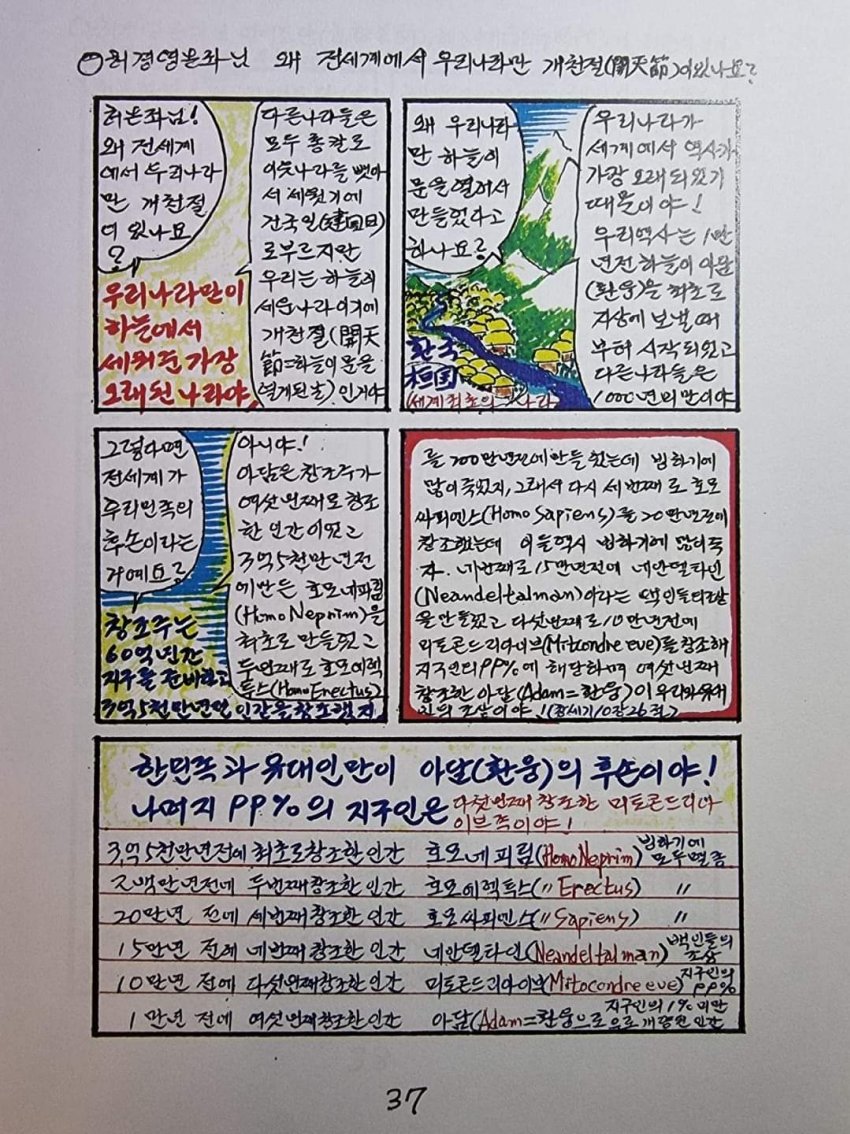 ○허경영은좌님 왜 전세계에서 우리나라만 개천절(開天節)이있나요?
허은좌님!
왜 전세계
에서 우리나라
만 개천절
이 있나요
?
다른나라들은
모두 총칼로
이웃나라를 뺏아
서 세웠기에
건국일(建国日)
로부르지만
우리는 하늘이
세운나라이기에
개천절(開天
節=하늘이문을
열게된날)인거야
우리나라만이
하늘에서
세워준 가장
오래된 나라야
왜 우리나라
만 하늘이
문을 열어서
만들었다고
하나요?
우리나라가
세계에서 역사가
가장 오래되었기
때문이야!
우리역사는 1만
년전 하늘이 아담
(환웅)을 최초로
지상에 보낼때
부터 시작되었고
다른나라들은
1000년미만이야
환국
桓国
(세계최초의 나라
그렇다면
전세계가
우리민족의
후손이라는
거예요?
아니야!
아담은 창조주가
여섯번째로 창조
한 인간이었고
3억5천만년전
에만든 호모네피림
(Homo Neprim)을
최초로 만들었고
두번째로 호모에렉
툭스(Homo Erectus)
창조주는
60억년간
지구를 준비하고
3억5천만년전 인간을창조했지
를 200만년전에만들었는데 빙하기에
많이죽었지, 그래서 다시 세번째로 호모
싸피엔스(Homo Sapiens)를 20만년전에
창조했는데 이들역시 빙하기에 많이죽
자. 네번째로 15만년전에 네안델타인
(Neandeltalman)이라는 백인들의조상
을만들었고 다섯번째로 10만년전에
미토콘드리아이브(Mitocondre eve)를창조해
지구인의99%에 해당하며 여섯번째
창조한 아담(Adam=환웅)이 우리와유대
인의 조상이야!(창세기10장26절)
한민족과 유대인만이 아담(환웅)의 후손이야!
나머지 99%의 지구인은 다섯번째 창조한 미토콘드리아
이브족이야!
3억5천만년전에 최초로창조한인간 호모네피림(Homo Neprim) 빙하기에 모두멸종
2백만년전에 두번째창조한인간 호모에렉툭스(〃Erectus) 〃
20만년 전에 세번째창조한인간 호모싸피엔스(〃Sapiens) 〃
15만년 전에 네번째창조한인간 네안델타인(Neandeltalman) 백인들의 조상
10만년 전에 다섯번째창조한인간 미토콘드리아이브(Mitocondre eve) 지구인의 99%
1만년 전에 여섯번째창조한인간 아담(Adam=환웅으로 지구인의 1%미만 으로 개량된 인간
37